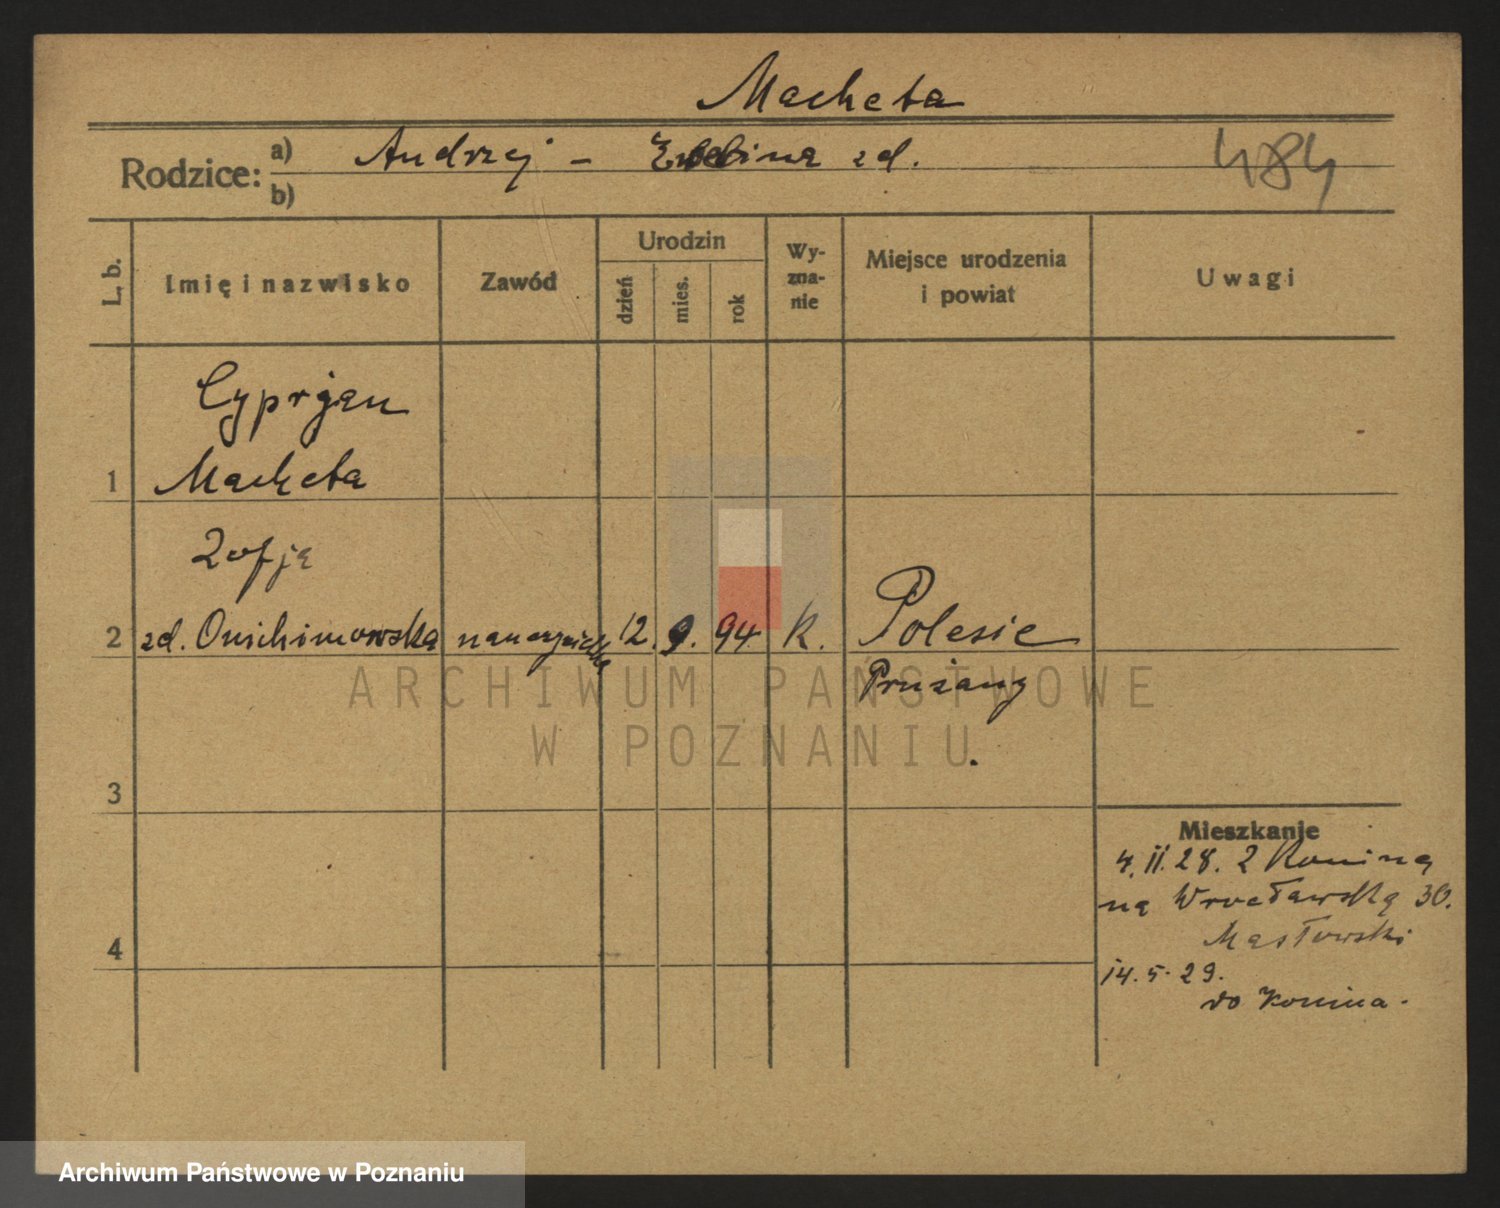 Macheta
Rodzice: a) Andrzej – zd. 484
b)
L. b. Imię i nazwisko Zawód Urodzin dzień mies. rok Wy-zna-nie Miejsce urodzenia i powiat Uwagi
Cyprjan
1 Macheta
Zofja
2 zd. Onichimowska nauczycielka 12. 9. 94 K. Polesie
Prużany
3
Mieszkanie
4. II. 28. Z Konina
na Wrocławską 30.
Masłowski
4
14. 5. 29.
do Konina.
ARCHIWUM PAŃSTWOWE
W POZNANIU
Archiwum Państwowe w Poznaniu